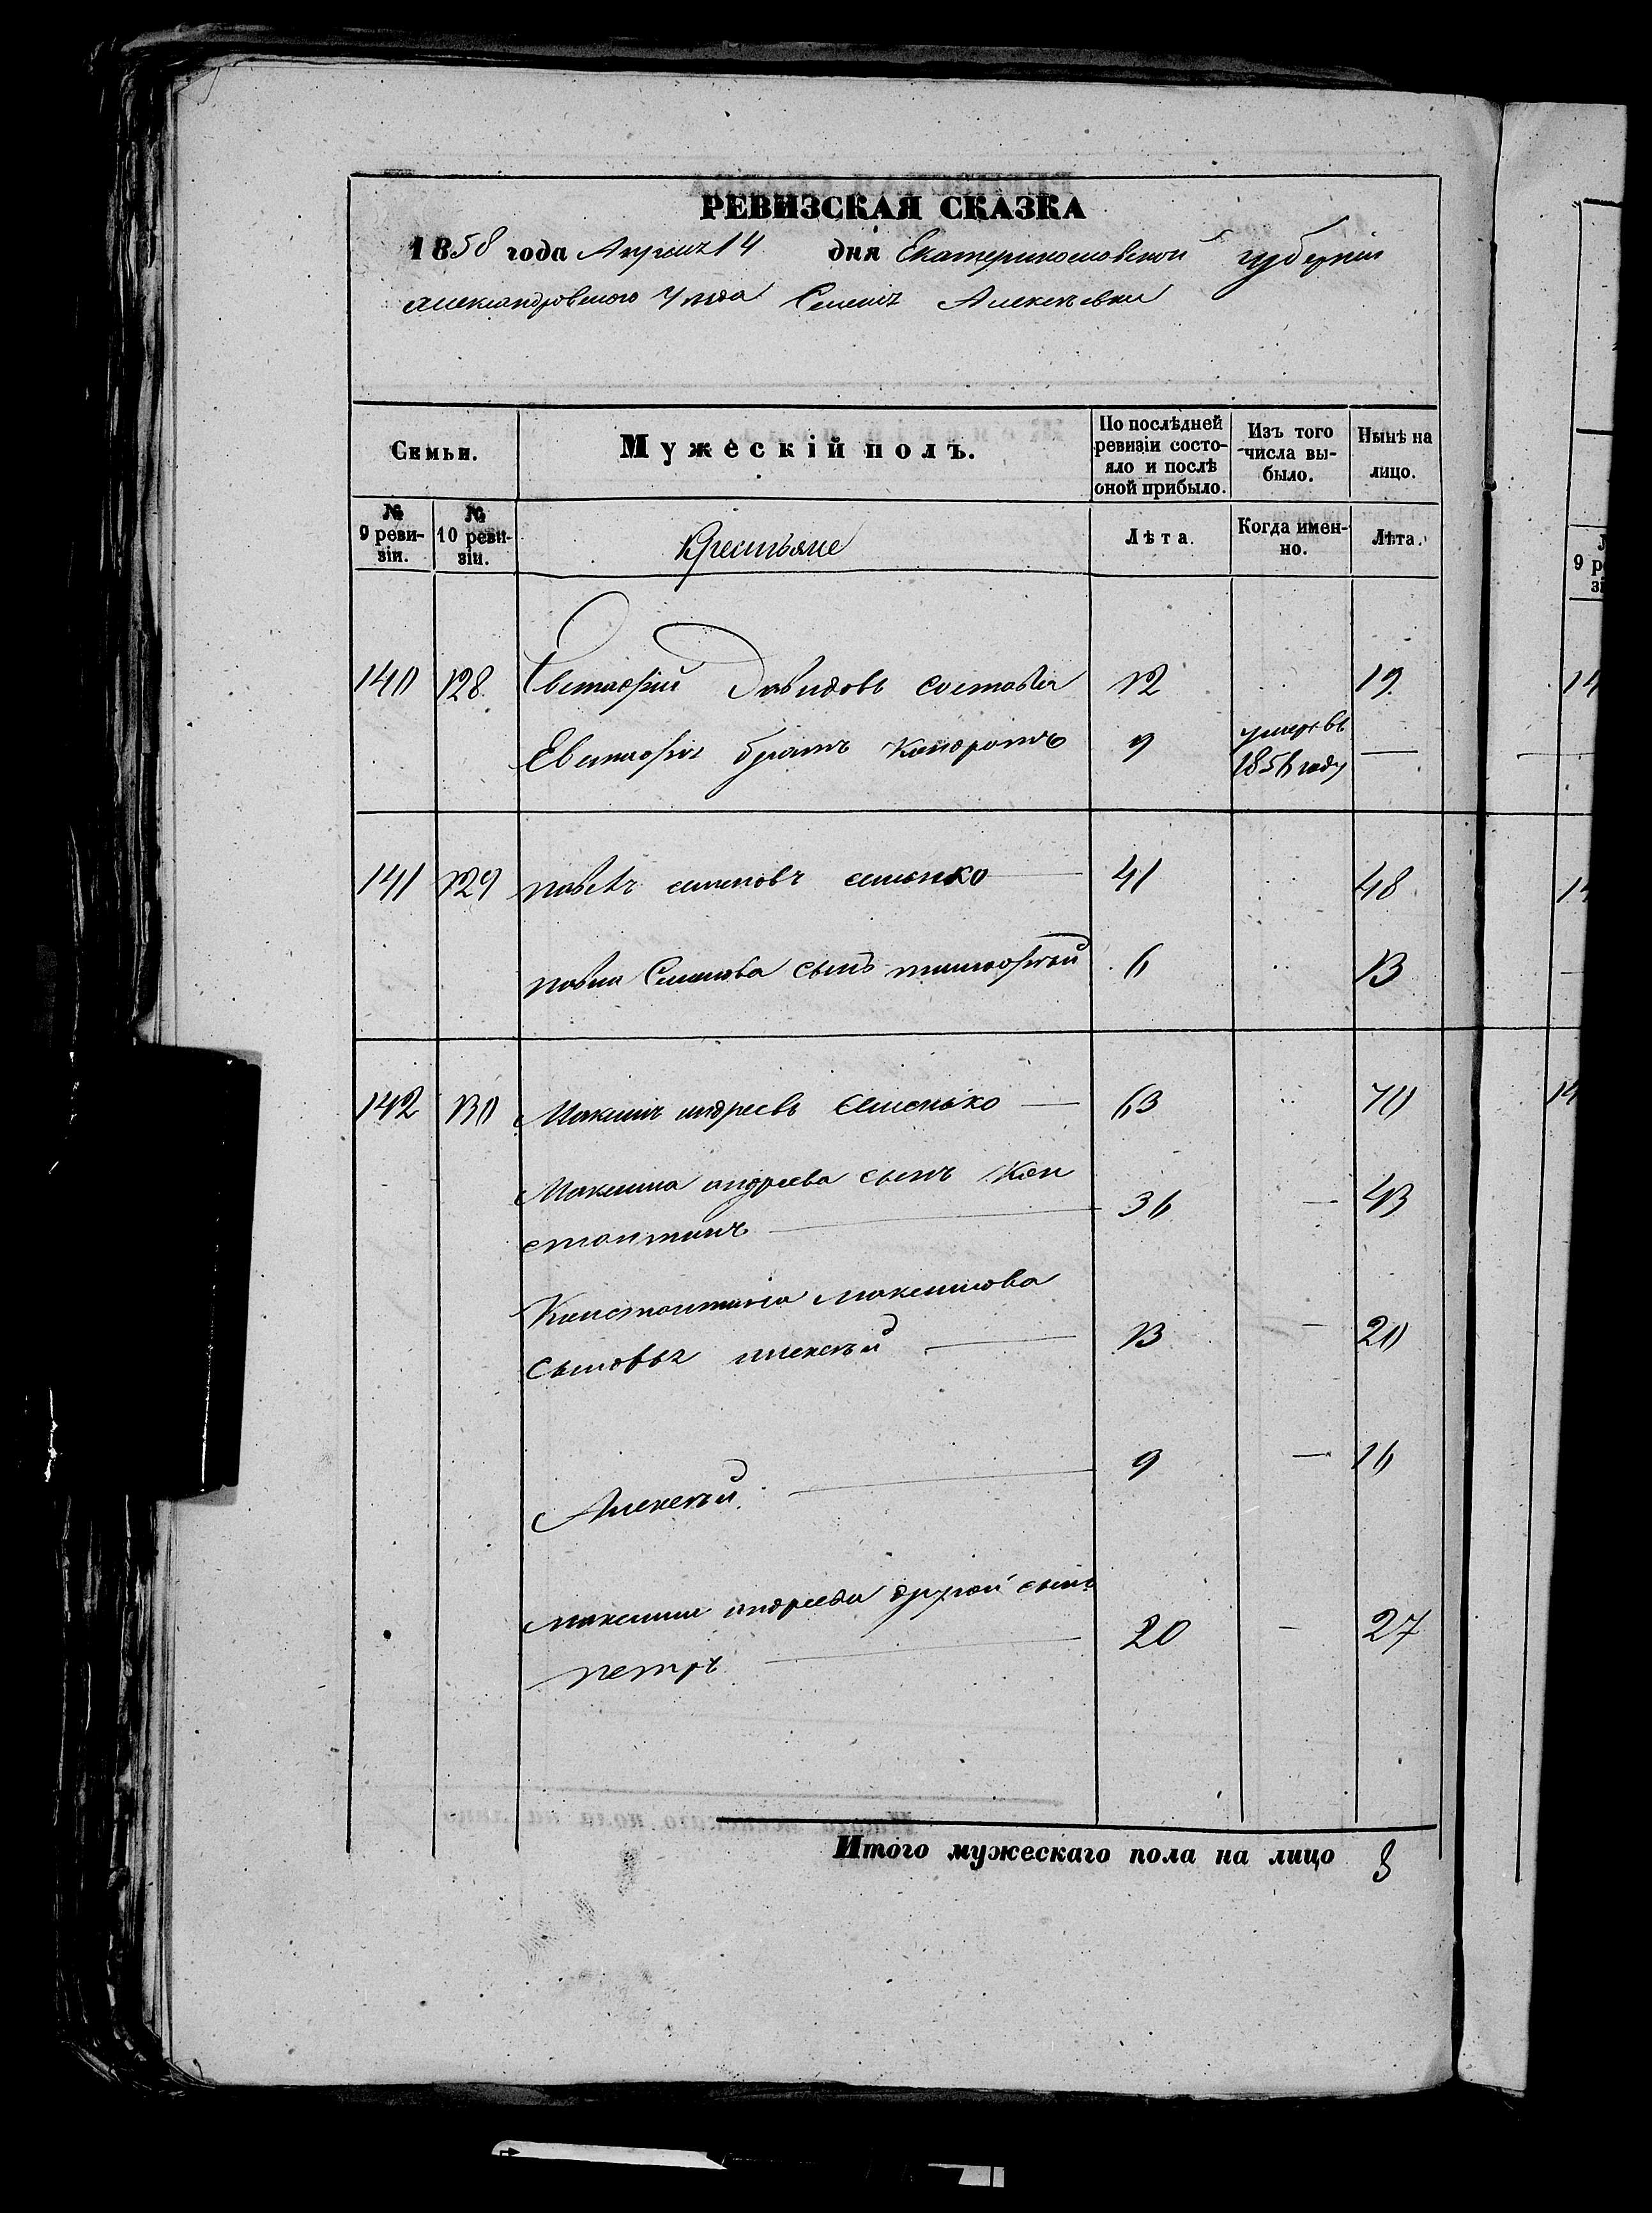 РЕВИЗСКАЯ СКАЗКА
1858 года Апреля 14 дня Екатеринославской губерніи
Александровского Уѣзда Селенія Алексѣевки
Семьи.
Мужескій полъ.
По послѣдней ревизіи состояло и послѣ оной прибыло.
Изъ того числа выбыло.
Нынѣ на лицо.
№ 9 ревизіи.
№ 10 ревизіи.
Крестьяне
Лѣта.
Когда именно.
Лѣта.
140 128 Евстафій Давидовъ 12 19
Евстафія братъ Кондратъ 9 умеръ въ 1856 году —
141 129 павелъ семеновъ семенко 41 48
павла Семенова сынъ тимофѣй 6 13
142 130 Максимъ андреевъ Семенько — 63 70
Максима андреева сынъ Кон
стантинъ — 36 — 43
Константина максимова
сыновья алексѣй — 13 — 20
Алексѣй — 9 — 16
максима андреева другой сынъ
петръ — 20 — 27
Итого мужескаго пола на лицо 8